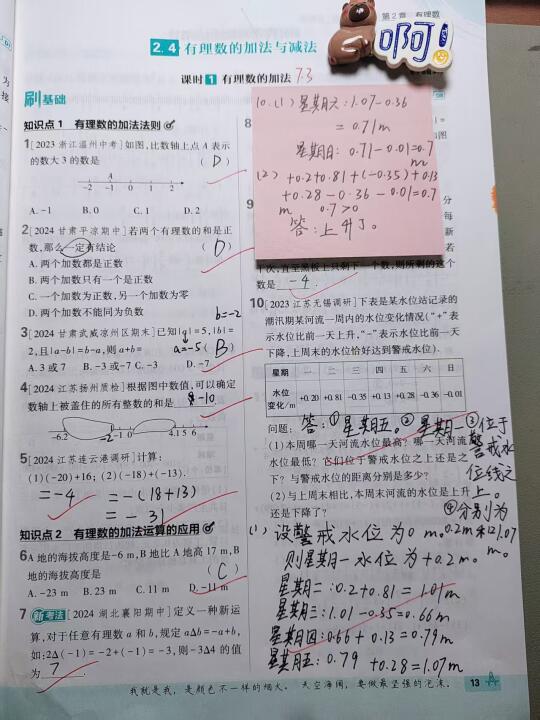 第2章 有理数
啊!
2.4 有理数的加法与减法
课时1 有理数的加法 73
刷基础
知识点1 有理数的加法法则
1 [2023浙江温州中考]如图,比数轴上点A表示
的数大3的数是 ( D )
A
-2 -1 0 1 2
A. -1 B. 0 C. 1 D. 2
2 [2024甘肃平凉期中]若两个有理数的和是正
数,那么一定有结论 ( D )
A. 两个加数都是正数
B. 两个加数只有一个是正数
C. 一个加数为正数,另一个加数为零
D. 两个加数不能同为负数
b=-2
3 [2024甘肃武威凉州区期末]已知|a|=5,|b|=
2,且|a-b|=b-a,则a+b= a=-5 ( B )
A. 3或7 B. -3或-7 C. -3 D. -7
4 [2024江苏扬州质检]根据图中数值,可以确定
数轴上被盖住的所有整数的和是 -10
-6.2 -2 -1 0 4.1 5 6
5 [2024江苏连云港调研]计算:
(1)(-20)+16; (2)(-18)+(-13).
=-4 =-(18+13)
=-31
知识点2 有理数的加法运算的应用
6 A地的海拔高度是-6 m,B地比A地高17 m,B
地的海拔高度是 ( C )
A. -23 m B. 23 m C. 11 m D. -11 m
7 新考法 [2024湖北襄阳期中]定义一种新运
算,对于任意有理数a和b,规定aΔb=-a+b,
如:2Δ(-1)=-2+(-1)=-3,则-3Δ4的值
为 7 .
8
10.(1)星期六:1.07-0.36
=0.71m
星期日:0.71-0.01=0.7
m
(2)+0.2+0.81+(-0.35)+0.13
+0.28-0.36-0.01=0.7
m 0.7>0
答:上升了。
9
下次,直至黑板上只剩下一个数,则所剩的这个
数是 -4 .
10 [2023江苏无锡调研]下表是某水位站记录的
潮汛期某河流一周内的水位变化情况(“+”表
示水位比前一天上升,“-”表示水位比前一天
下降,上周末的水位恰好达到警戒水位).
星期 一 二 三 四 五 六 日
水位变化/m +0.20 +0.81 -0.35 +0.13 +0.28 -0.36 -0.01
答:①星期五。②星期一③位于
警戒水
位线之
上。
④分别为
0.2m和1.07
m。
问题:
(1)本周哪一天河流水位最高?哪一天河流
水位最低?它们位于警戒水位之上还是之
下?与警戒水位的距离分别是多少?
(2)与上周末相比,本周末河流的水位是上升
还是下降了?
(1)设警戒水位为0 m。
则星期一水位为+0.2m。
星期二:0.2+0.81=1.01m
星期三:1.01-0.35=0.66m
星期四:0.66+0.13=0.79m
星期五:0.79+0.28=1.07m
我就是我,是颜色不一样的烟火。天空海阔,要做最坚强的泡沫。
13